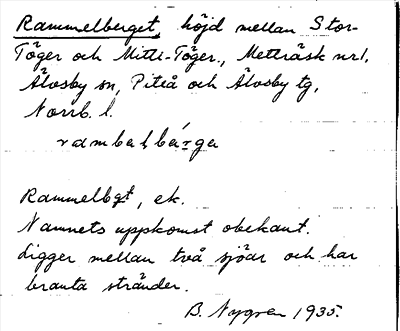 Rammelberget, höjd mellan Stor-
Töger och Mitti-Töger, Metträsk nr 1,
Älvsby sn, Piteå och Älvsby tg,
Norrb. l.
Rammelbgt, ek.
Namnets uppkomst obekant.
Ligger mellan två sjöar och har
branta stränder.
B. Nygren 1935.